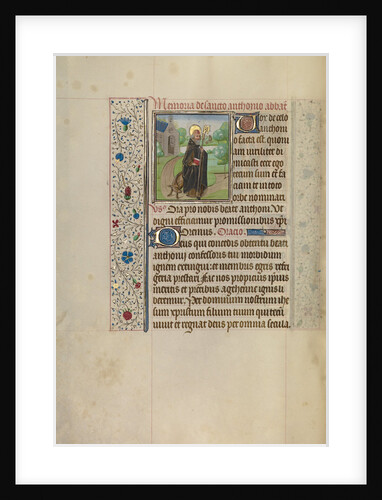 Memoria de sancto anthonio abbate
Vox de celo
ad anthoni
o facta est. quoni
am viriliter di
micasti ecce ego
tecum sum et fa
ciam te in toto
orbe nominari
Ora pro nobis beate anthoni Vt
digni efficiamur promissionibus xpi
Oremus. Oracio.
Deus qui concedis obtentu beati
anthonij confessoris tui morbidum
ignem extingui et membris egris refri
geria prestari Fac nos propicius ipsius
meritis et precibus a gehenne ignis li
berari. Per dominum nostrum ihe
sum xpistum filium tuum qui tecum
viuit et regnat deus per omnia secula.